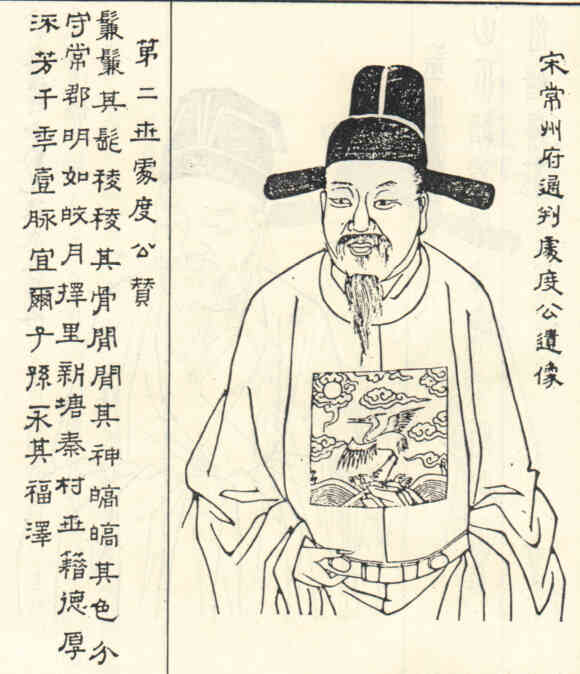 宋常州府通判處度公遺像
第二世處度公贊
鬑鬑其髭稜稜其骨閒閒其神皜皜其色分
守常郡明如皎月擇里新塘秦村世籍德厚
深芳千季壹脉宜爾子孫永其福澤